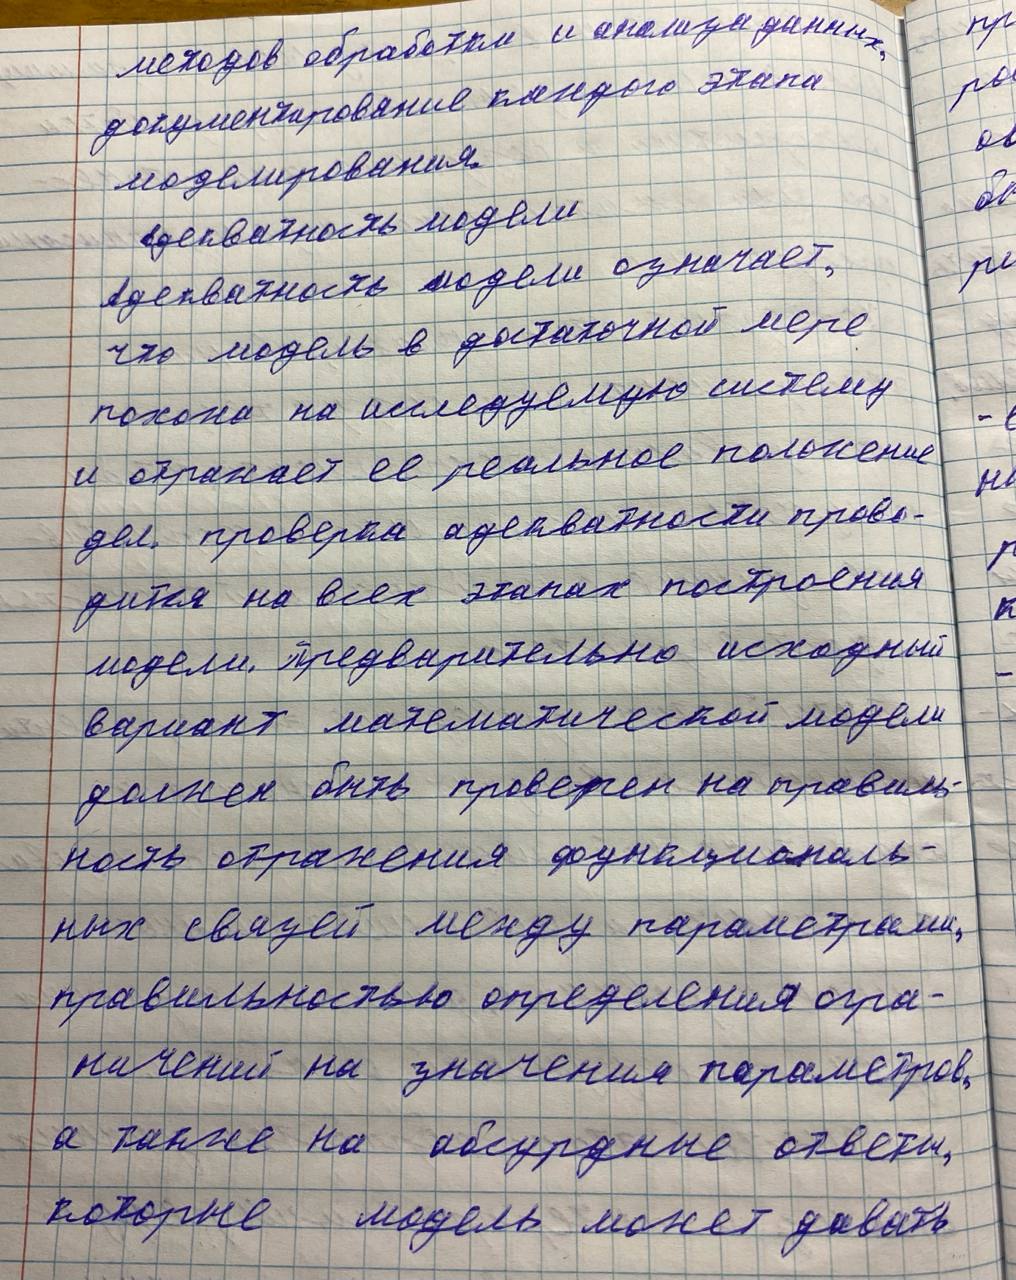 методов обработки и анализа данных,
документирование каждого этапа
моделирования.
Адекватность модели
Адекватность модели означает,
что модель в достаточной мере
похожа на исследуемую систему
и отражает ее реальное положение
дел. проверка адекватности прово-
дится на всех этапах построения
модели. Предварительно исходный
вариант математической модели
должен быть проверен на правиль-
ность отражения функциональ-
ных связей между параметрами,
правильностью определения огра-
ничений на значения параметров,
а также на абсурдные ответы,
которые модель может давать